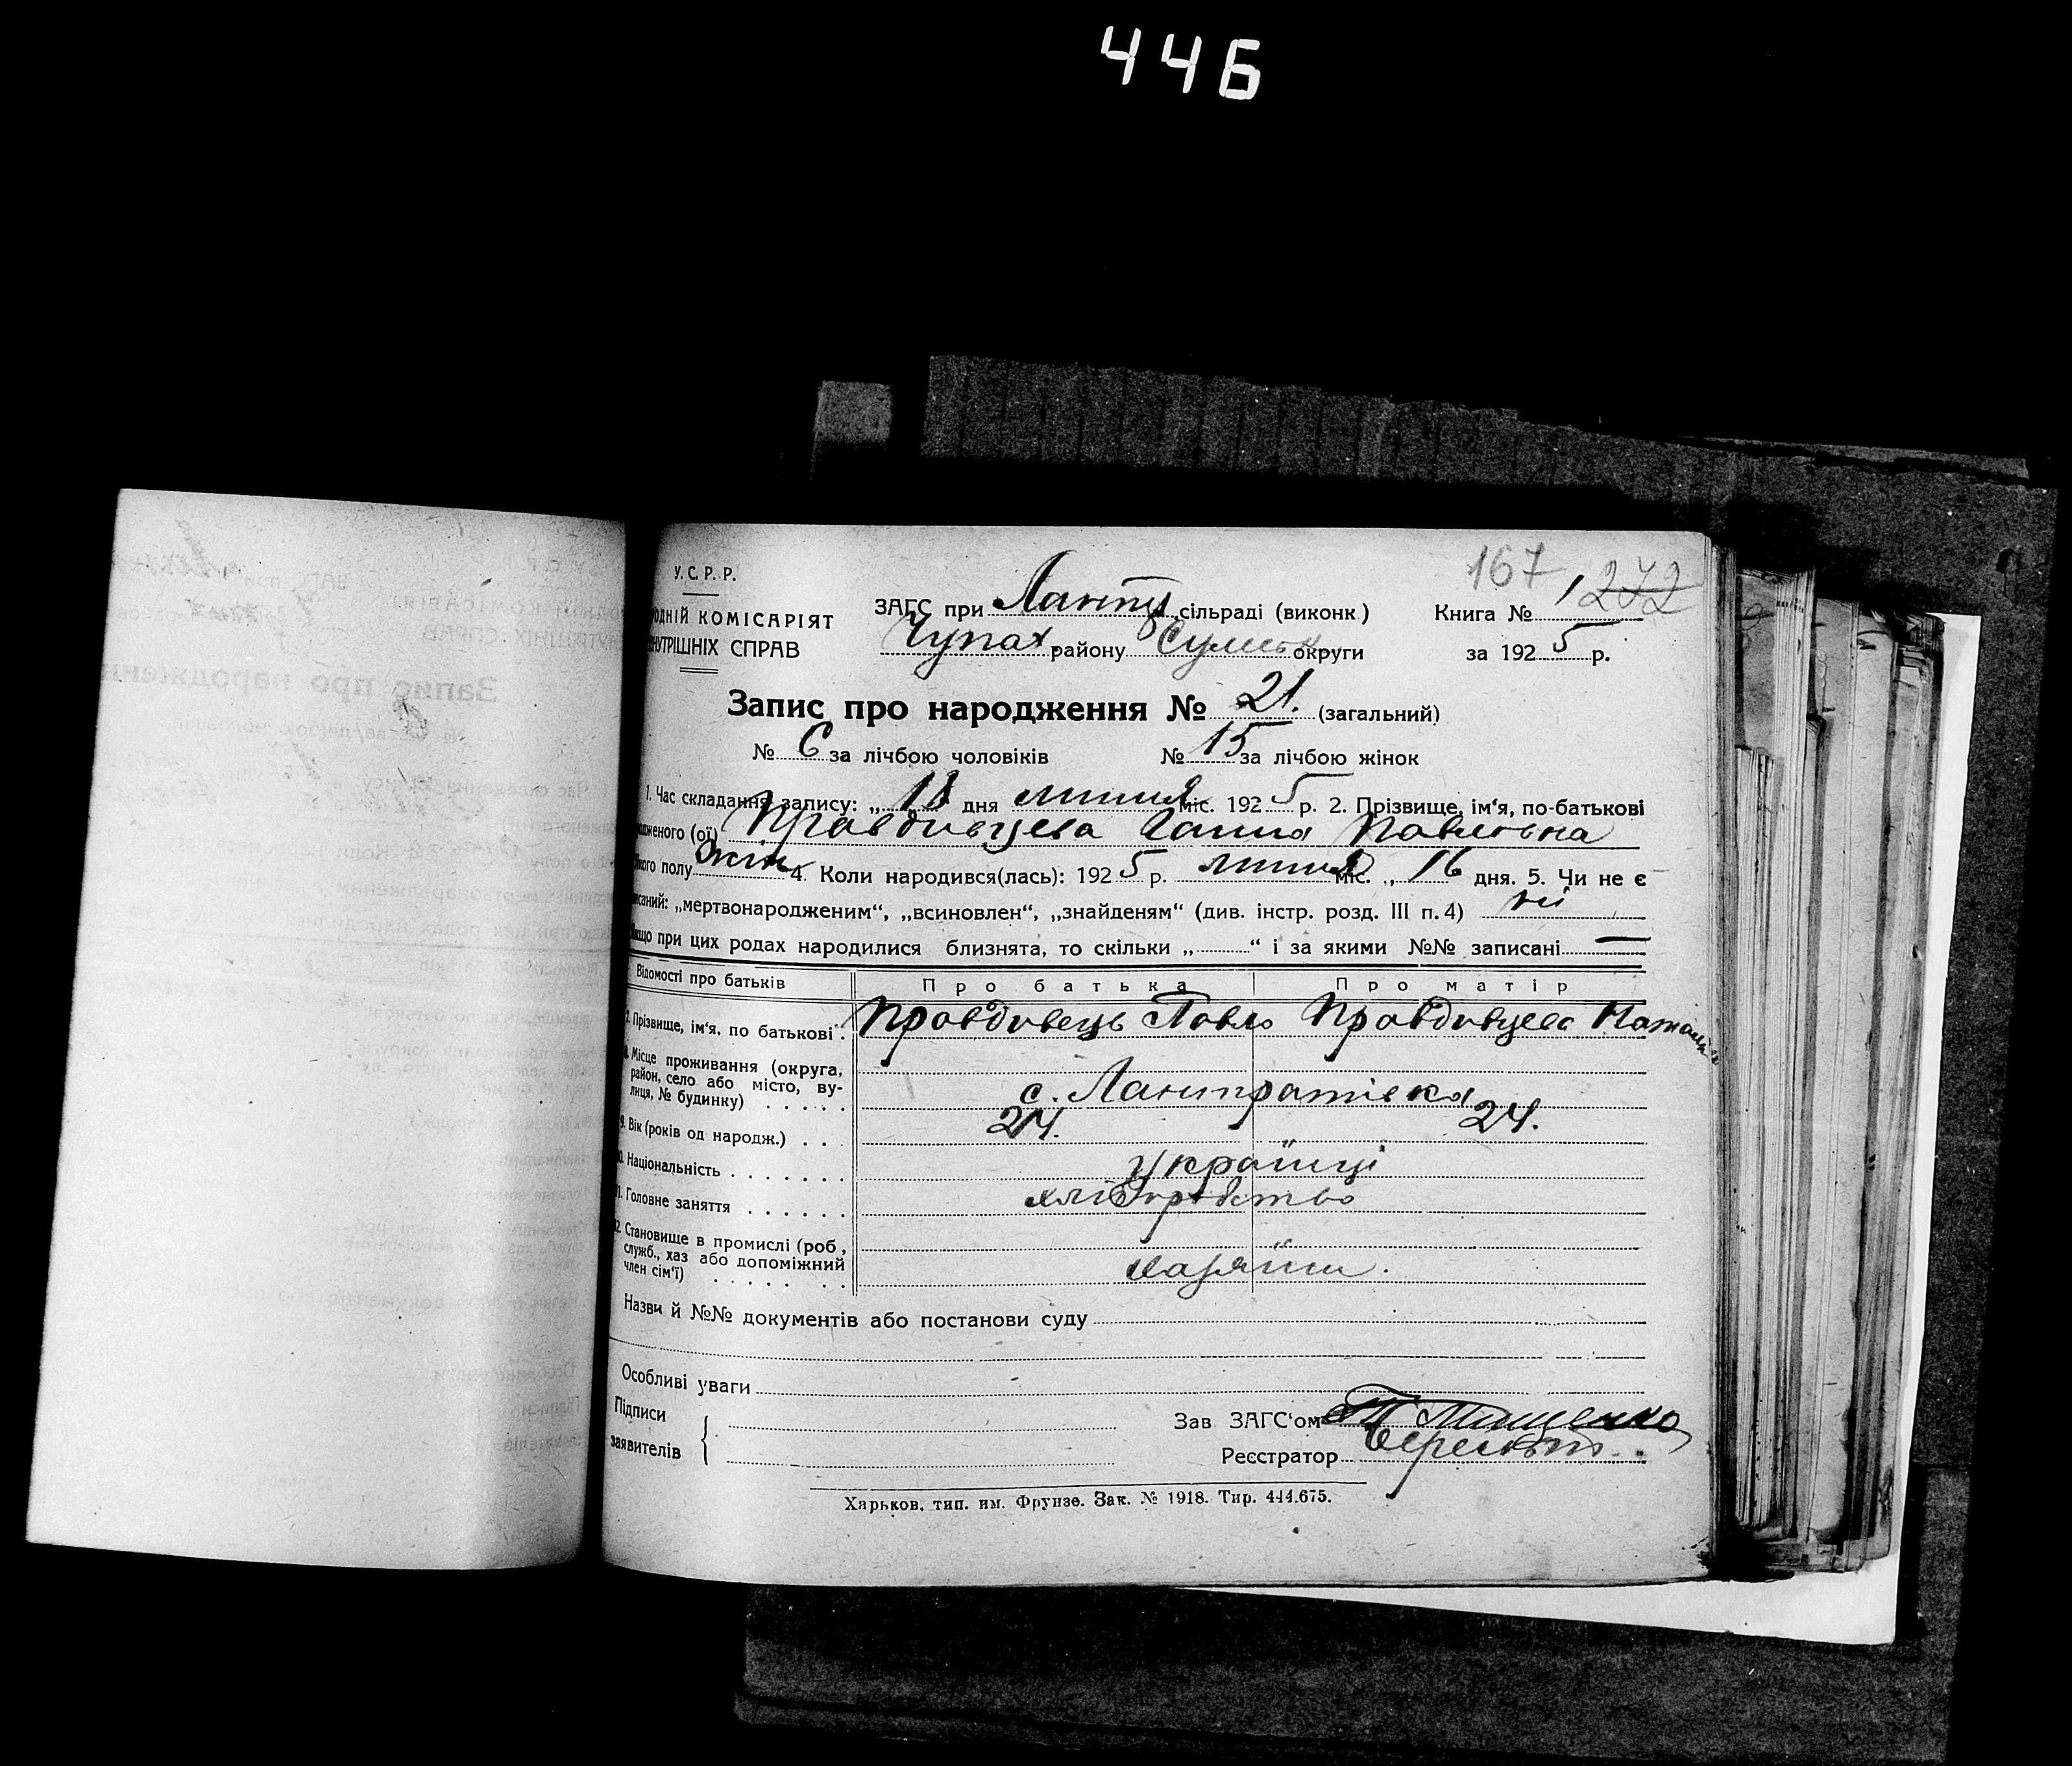 446
167 272
У. С. Р. Р.
ОДНІЙ КОМІСАРІЯТ
НУТРІШНІХ СПРАВ
ЗАГС при Лантр сільраді (виконк) Книга № 1
Чупах району Сумськ округи за 1925 р.
Запис про народження № 21. (загальний)
№ 6 за лічбою чоловіків № 15 за лічбою жінок
1. Час складання запису: „18 дня липня міс. 1925 р. 2. Прізвище, ім‘я, по-батькові
одженого (ої) Правдивцева Ганна Павловна
якого полу жін 4. Коли народився(лась): 1925 р. липня міс. „16 дня. 5. Чи не є
писаний: „мертвонародженим“, „всиновлен“, „знайденям“ (див. інстр. розд. III п. 4) ні
Якщо при цих родах народилися близнята, то скільки „ “ і за якими №№ записані —
Відомості про батьків Про батька Про матір
Прізвище, ім‘я, по батькові Правдивець Павло Правдивцева Наталія
8. Місце проживання (округа,
район, село або місто, ву-
лиця, № будинку) с. Лантратівка
9. Вік (років од народж.) 24. 24.
10. Національність українці
11. Головне заняття хліборобство
12. Становище в промислі (роб.,
служб., хаз або допоміжний
член сім‘ї) хазяїни.
Назви й №№ документів або постанови суду
Особливі уваги
Підписи
заявителів
Зав ЗАГС‘ом Т Мищенко
Реєстратор
Харьков, тип. им. Фрунзе. Зак. № 1918. Тир. 444.675.